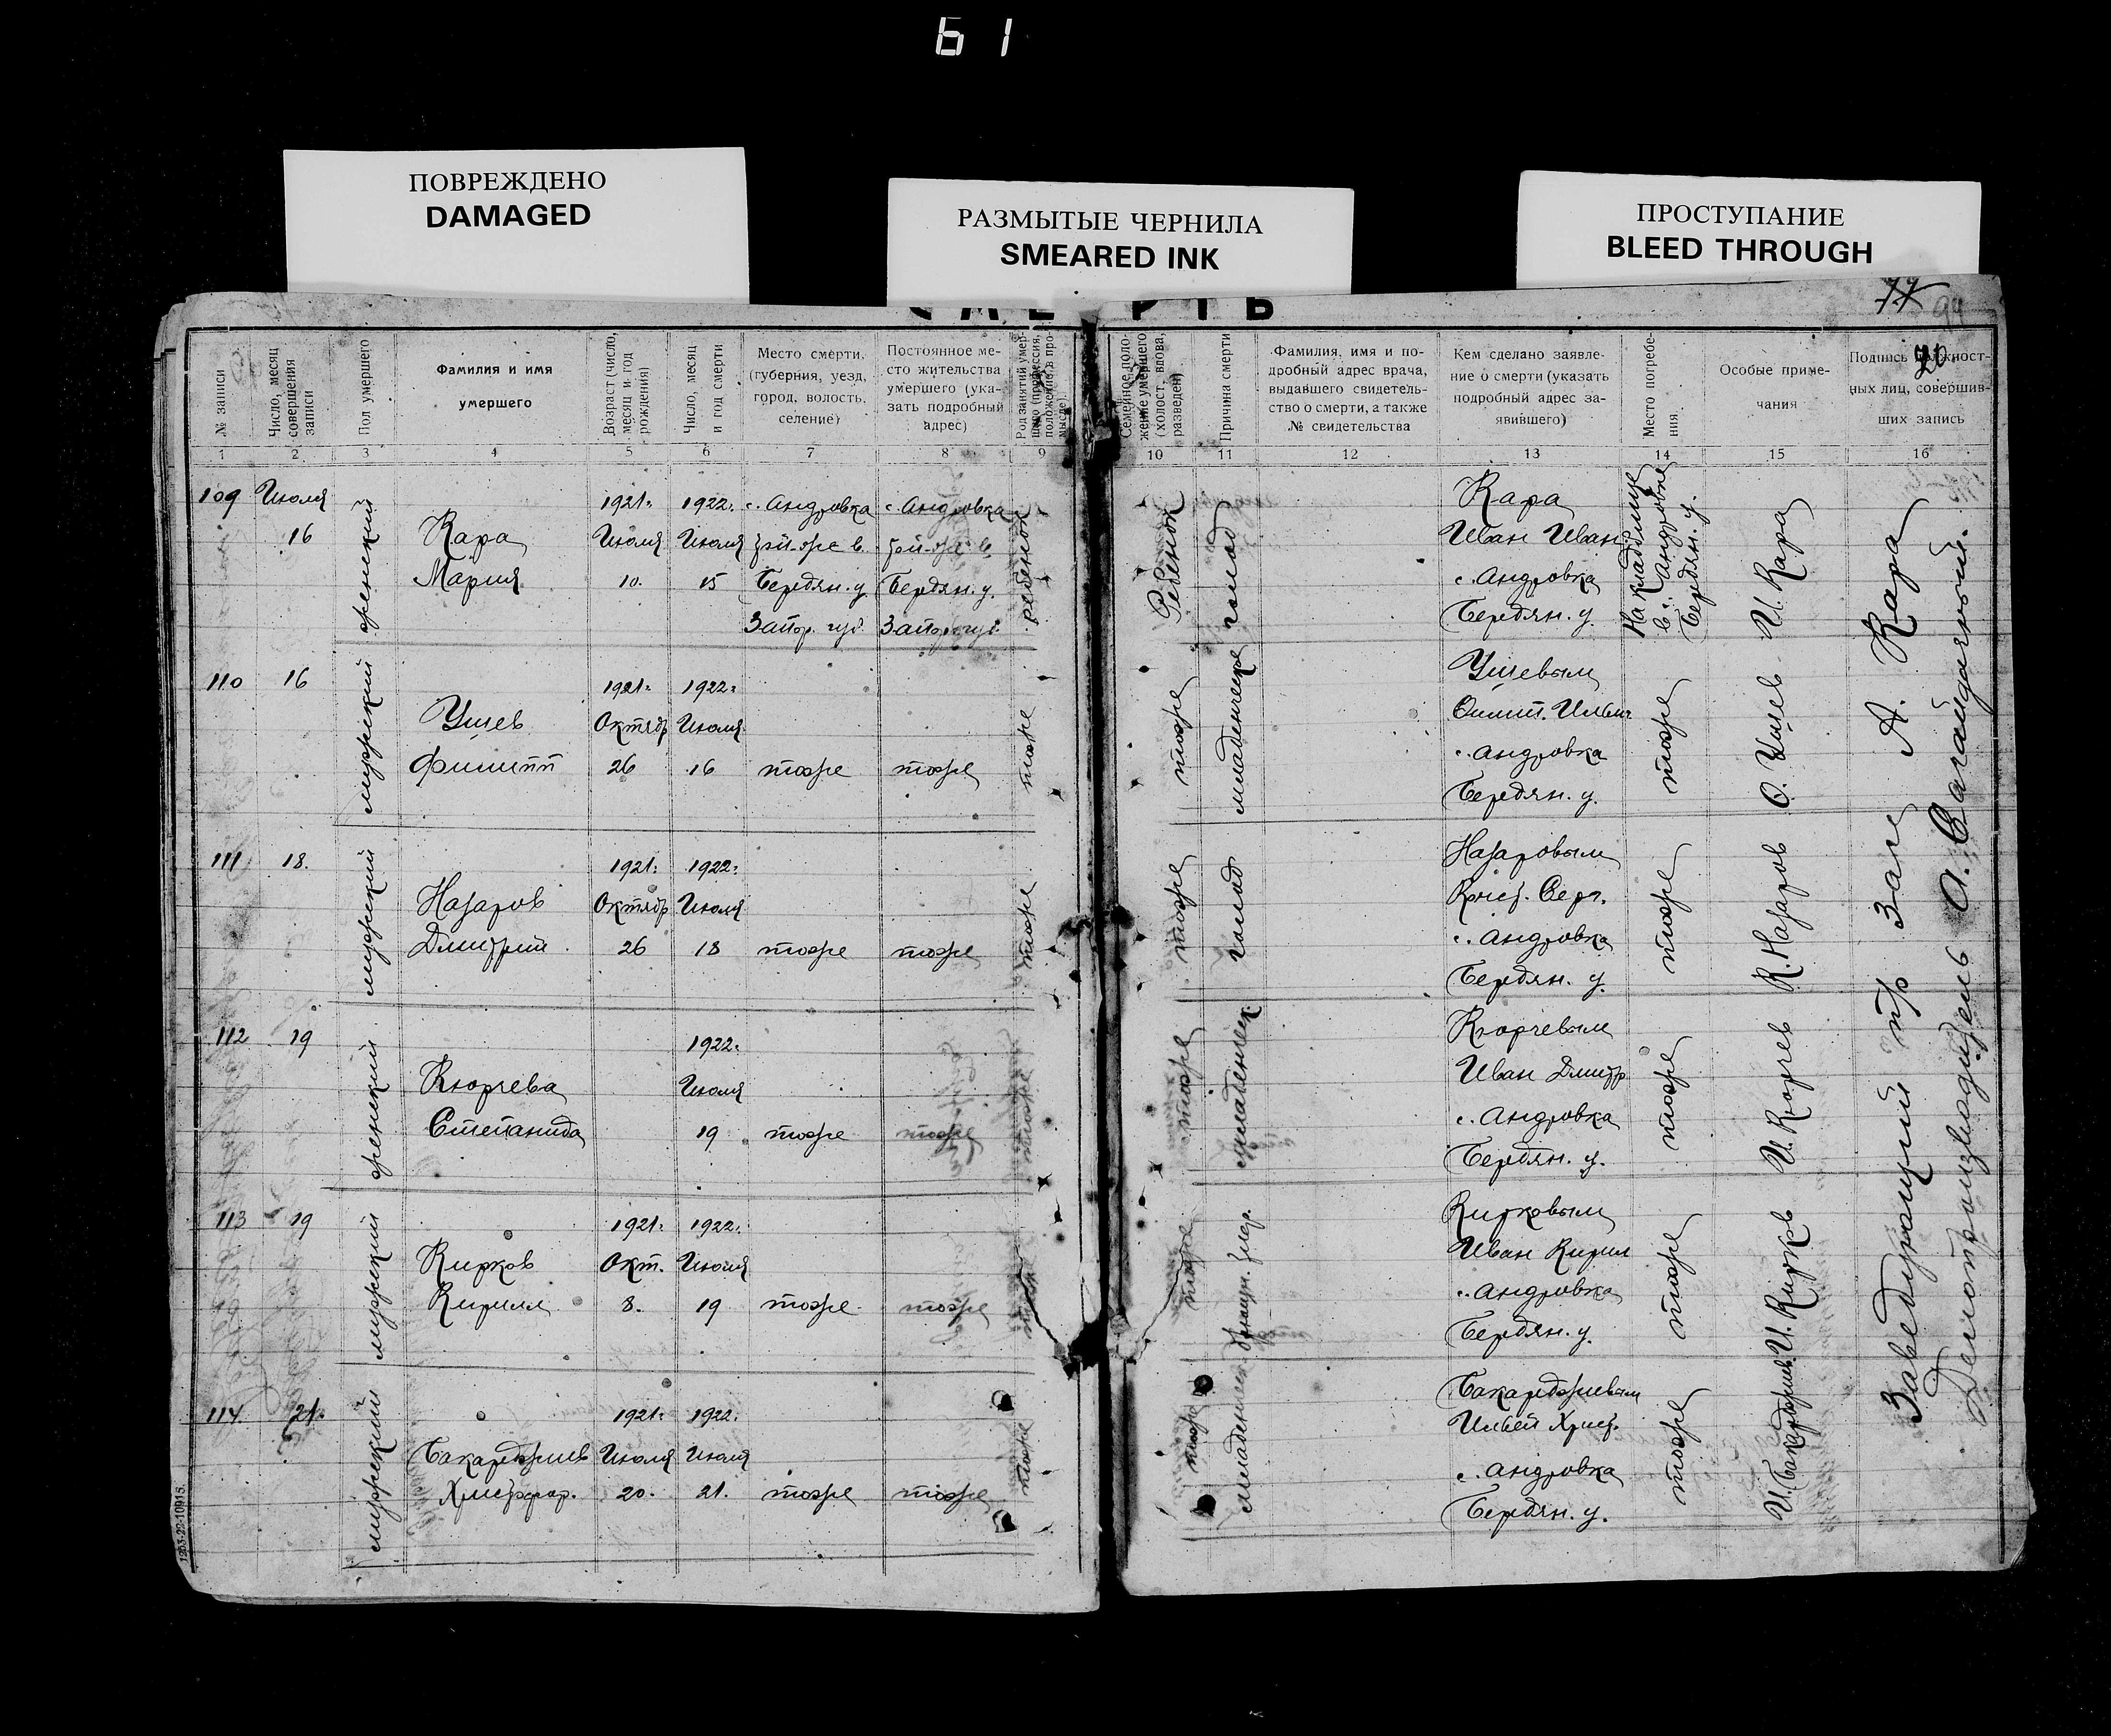 61
ПОВРЕЖДЕНО
DAMAGED
РАЗМЫТЫЕ ЧЕРНИЛА
SMEARED INK
ПРОСТУПАНИЕ
BLEED THROUGH
77
94
№ записи
Число, месяц совершения записи
Пол умершего
Фамилия и имя умершего
Возраст (число, месяц и год рождения)
Число, месяц и год смерти
Место смерти, (губерния, уезд, город, волость, селение)
Постоянное место жительства умершего (указать подробный адрес)
Род занятий умершего (профессия, положение в промысле)
Семейное положение умершего (холост, вдова, разведен)
Причина смерти
Фамилия, имя и подробный адрес врача, выдавшего свидетельство о смерти, а также № свидетельства
Кем сделано заявление о смерти (указать подробный адрес заявившего)
Место погребения
Особые примечания
Подпись должностных лиц, совершивших запись
1 2 3 4 5 6 7 8 9 10 11 12 13 14 15 16
109
Июля
16
женский
Кара
Мария
1921г.
Июля
10.
1922г.
Июля
15
с. Андровка
Бердян. у.
Запор. губ.
с. Андровка
Бердян. у.
Запор. губ.
ребенок
Ребенок
голод
Кара
Иван Иван.
с. Андровка
Бердян. у.
На кладбище
в с. Андровке
Бердян. у.
И. Кара
110
16
мужский
Ушев
Филипп
1921г.
Октябр
26
1922г.
Июля
16
тоже
тоже
тоже
тоже
младенческ
Ушевым
с. Андровка
Бердян. у.
тоже
О. Ушев
111
18.
мужский
Назаров
Дмитрий
1921г.
Октябр
26
1922г.
Июля
18
тоже
тоже
тоже
тоже
голод
Назаровым
с. Андровка
Бердян. у.
тоже
К. Назаров
112
19
женский
Кюрчева
Степанида
1922г.
Июля
19
тоже
тоже
тоже
тоже
младенческ
Кюрчевым
Иван Дмитр
с. Андровка
Бердян. у.
тоже
И. Кюрчев
113
19
мужский
Кирков
Кирилл
1921г.
Окт.
8.
1922г.
Июля
19
тоже
тоже
тоже
тоже
Кирковым
Иван Кирил
с. Андровка
Бердян. у.
тоже
И. Кирков
114
21.
мужский
Бакарджиев
Христофор.
1921г.
Июля
20.
1922г.
Июля
21.
тоже
тоже
тоже
тоже
младенческ
Бакарджиевым
Ильей Христ.
с. Андровка
Бердян. у.
тоже
И. Бакарджиев
Заведующий п/о Загс А. Кара
Делопроизводитель
1263-22-10915.